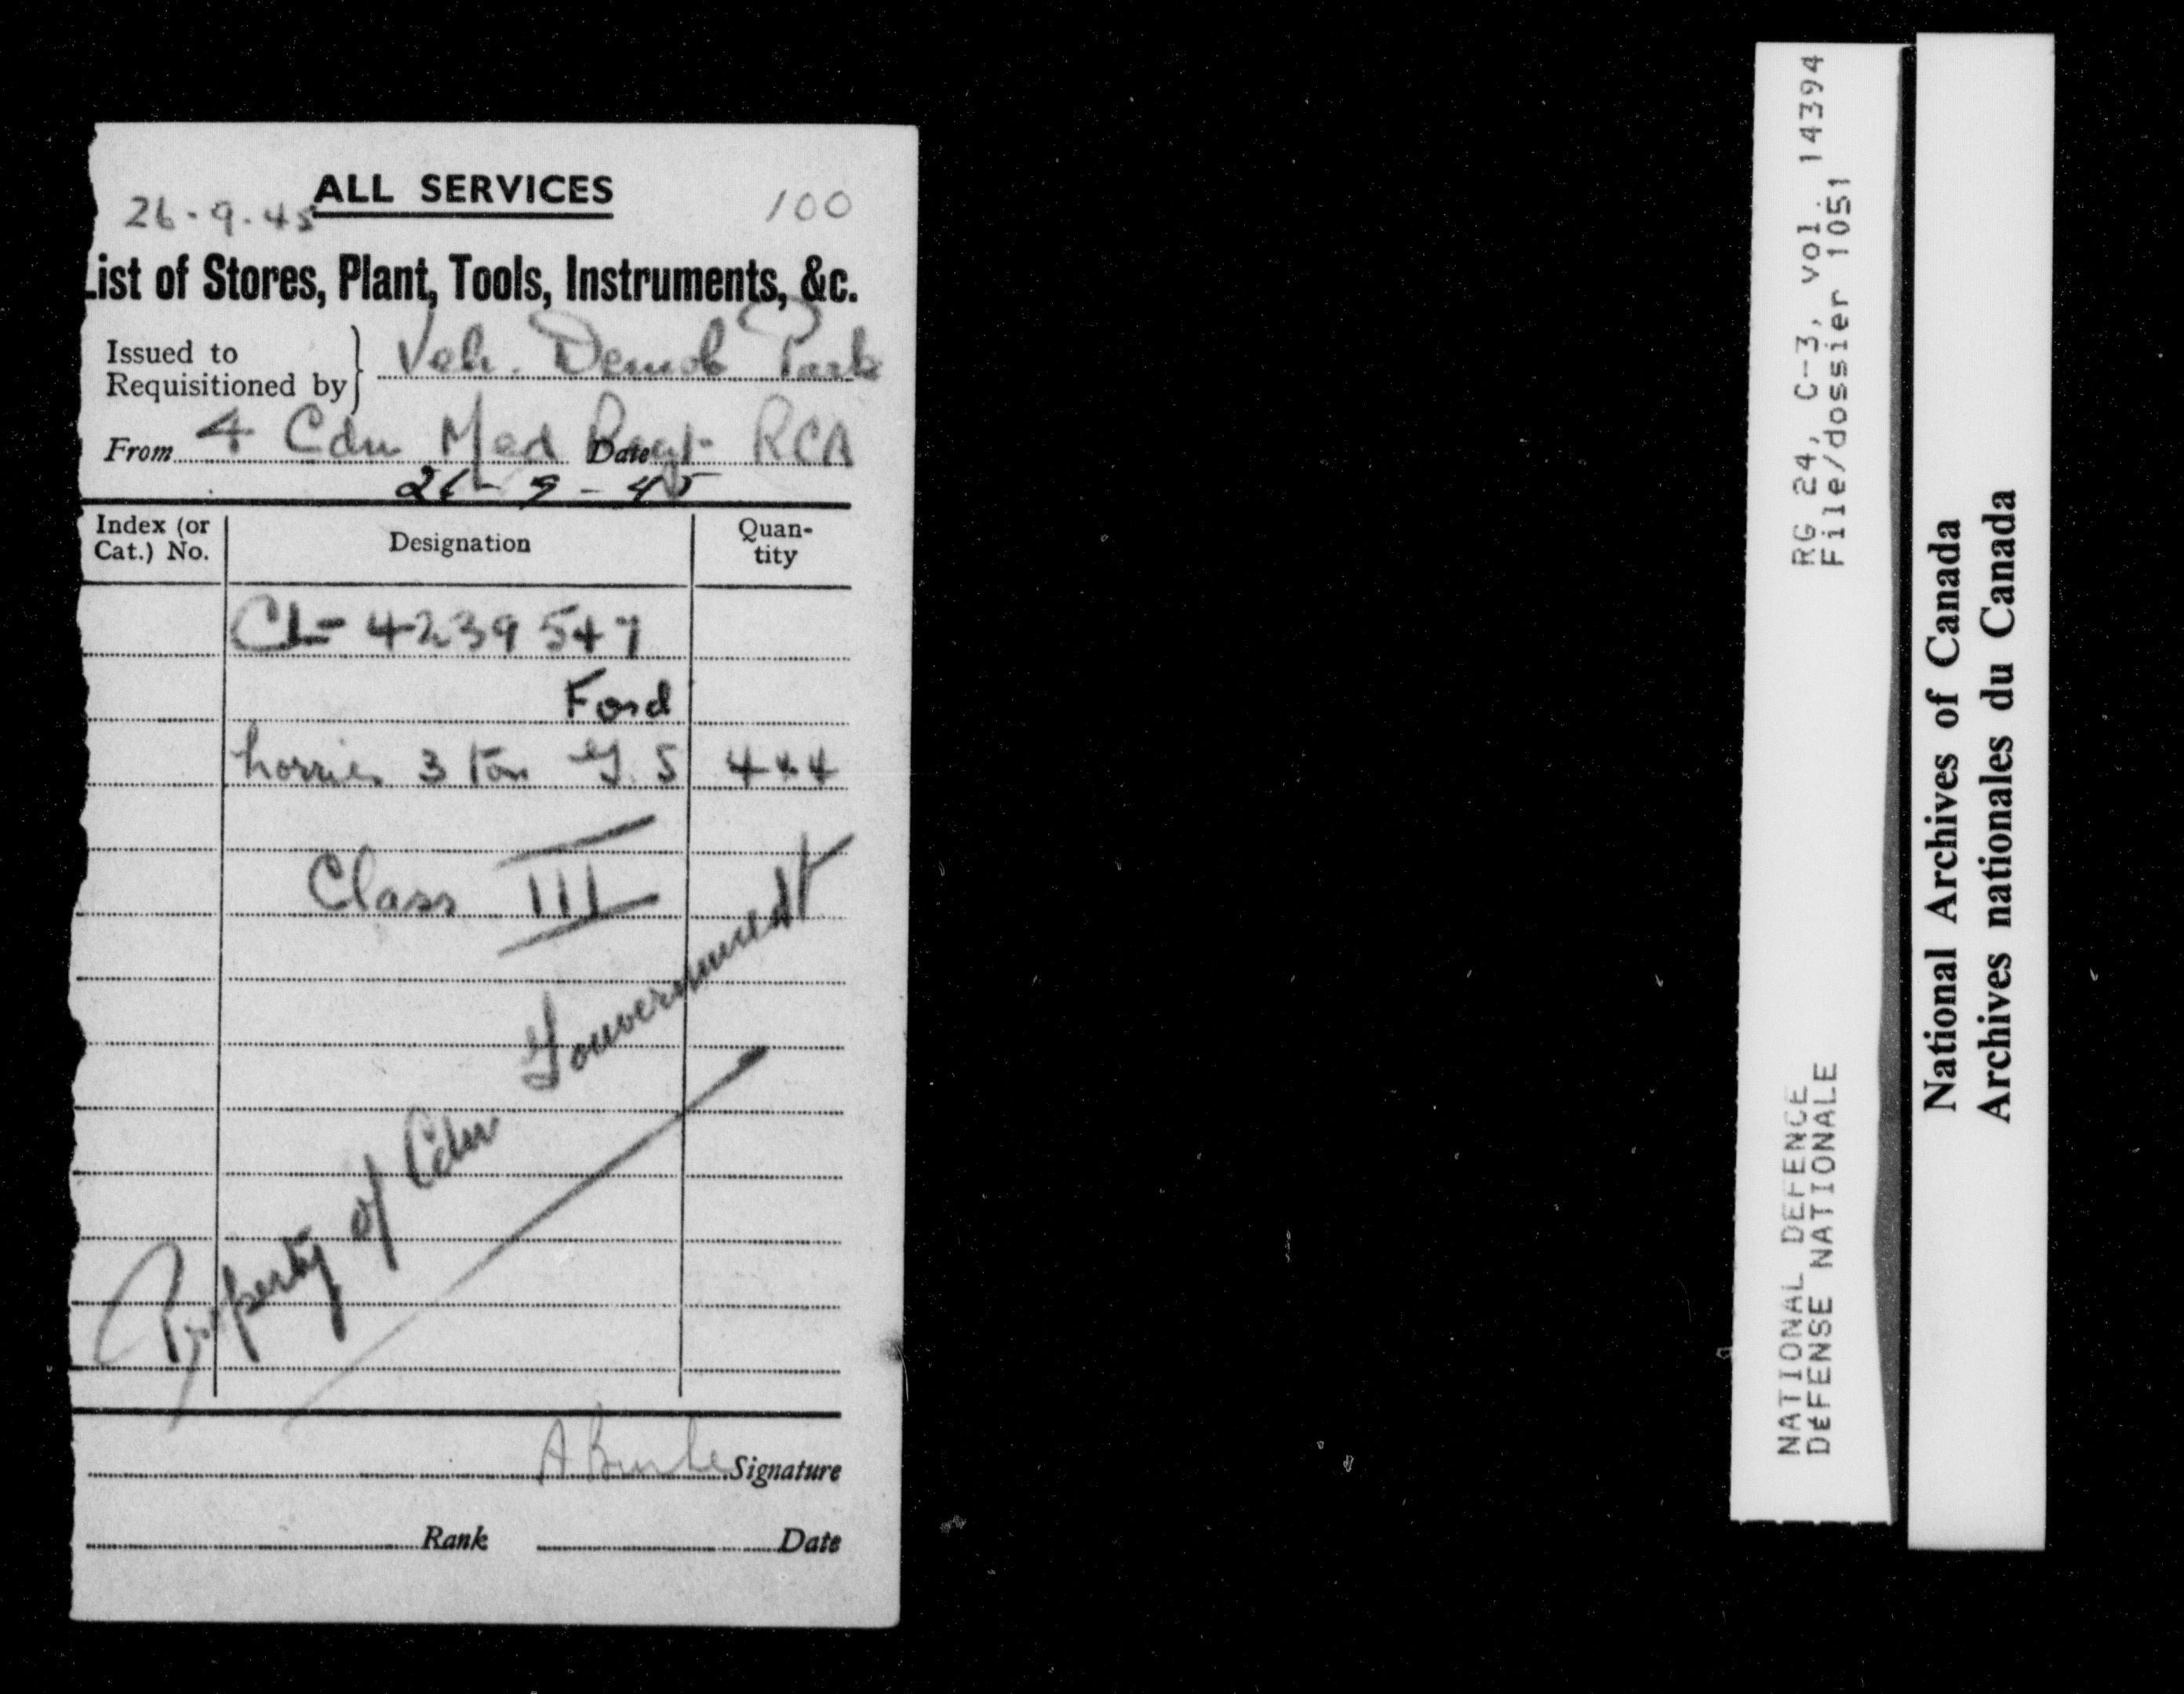 ALL SERVICES
26-9-45
100
List of Stores, Plant, Tools, Instruments, &c.
Issued to
Requisitioned by
Veh. Demob Park
From 4 Cdn Med Regt RCA
Date
26-9-45
Index (or Cat.) No.
Designation
Quantity
CL-4239547
Ford
Lorries 3 Ton G.S 4x4
Class III
Property of Cdn Gouvernment
Signature
Rank
Date
RG 24, C-3, vol. 14394
File/dossier 1051
NATIONAL DEFENCE
DÉFENSE NATIONALE
National Archives of Canada
Archives nationales du Canada